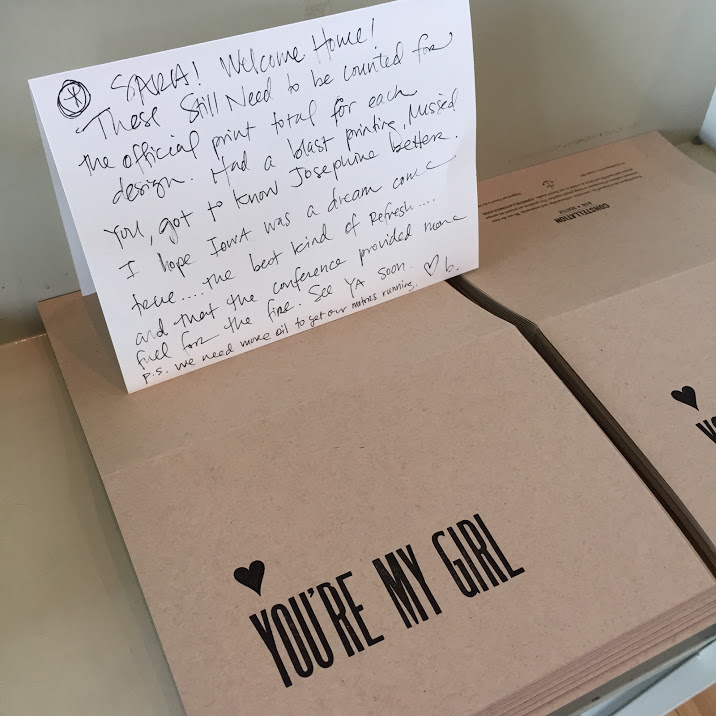 SARA! Welcome Home!
These Still Need to be counted for
the official print total for each
design. Had a blast printing, Missed
you, got to know Josephine better.
I hope Iowa was a dream come
true.... the best kind of Refresh....
and that the conference provided more
fuel for the fire. See YA soon. ♡ b.
P.S. we need more oil to get our motors running.
CONSTELLATION
♥
YOU'RE MY GIRL
♥